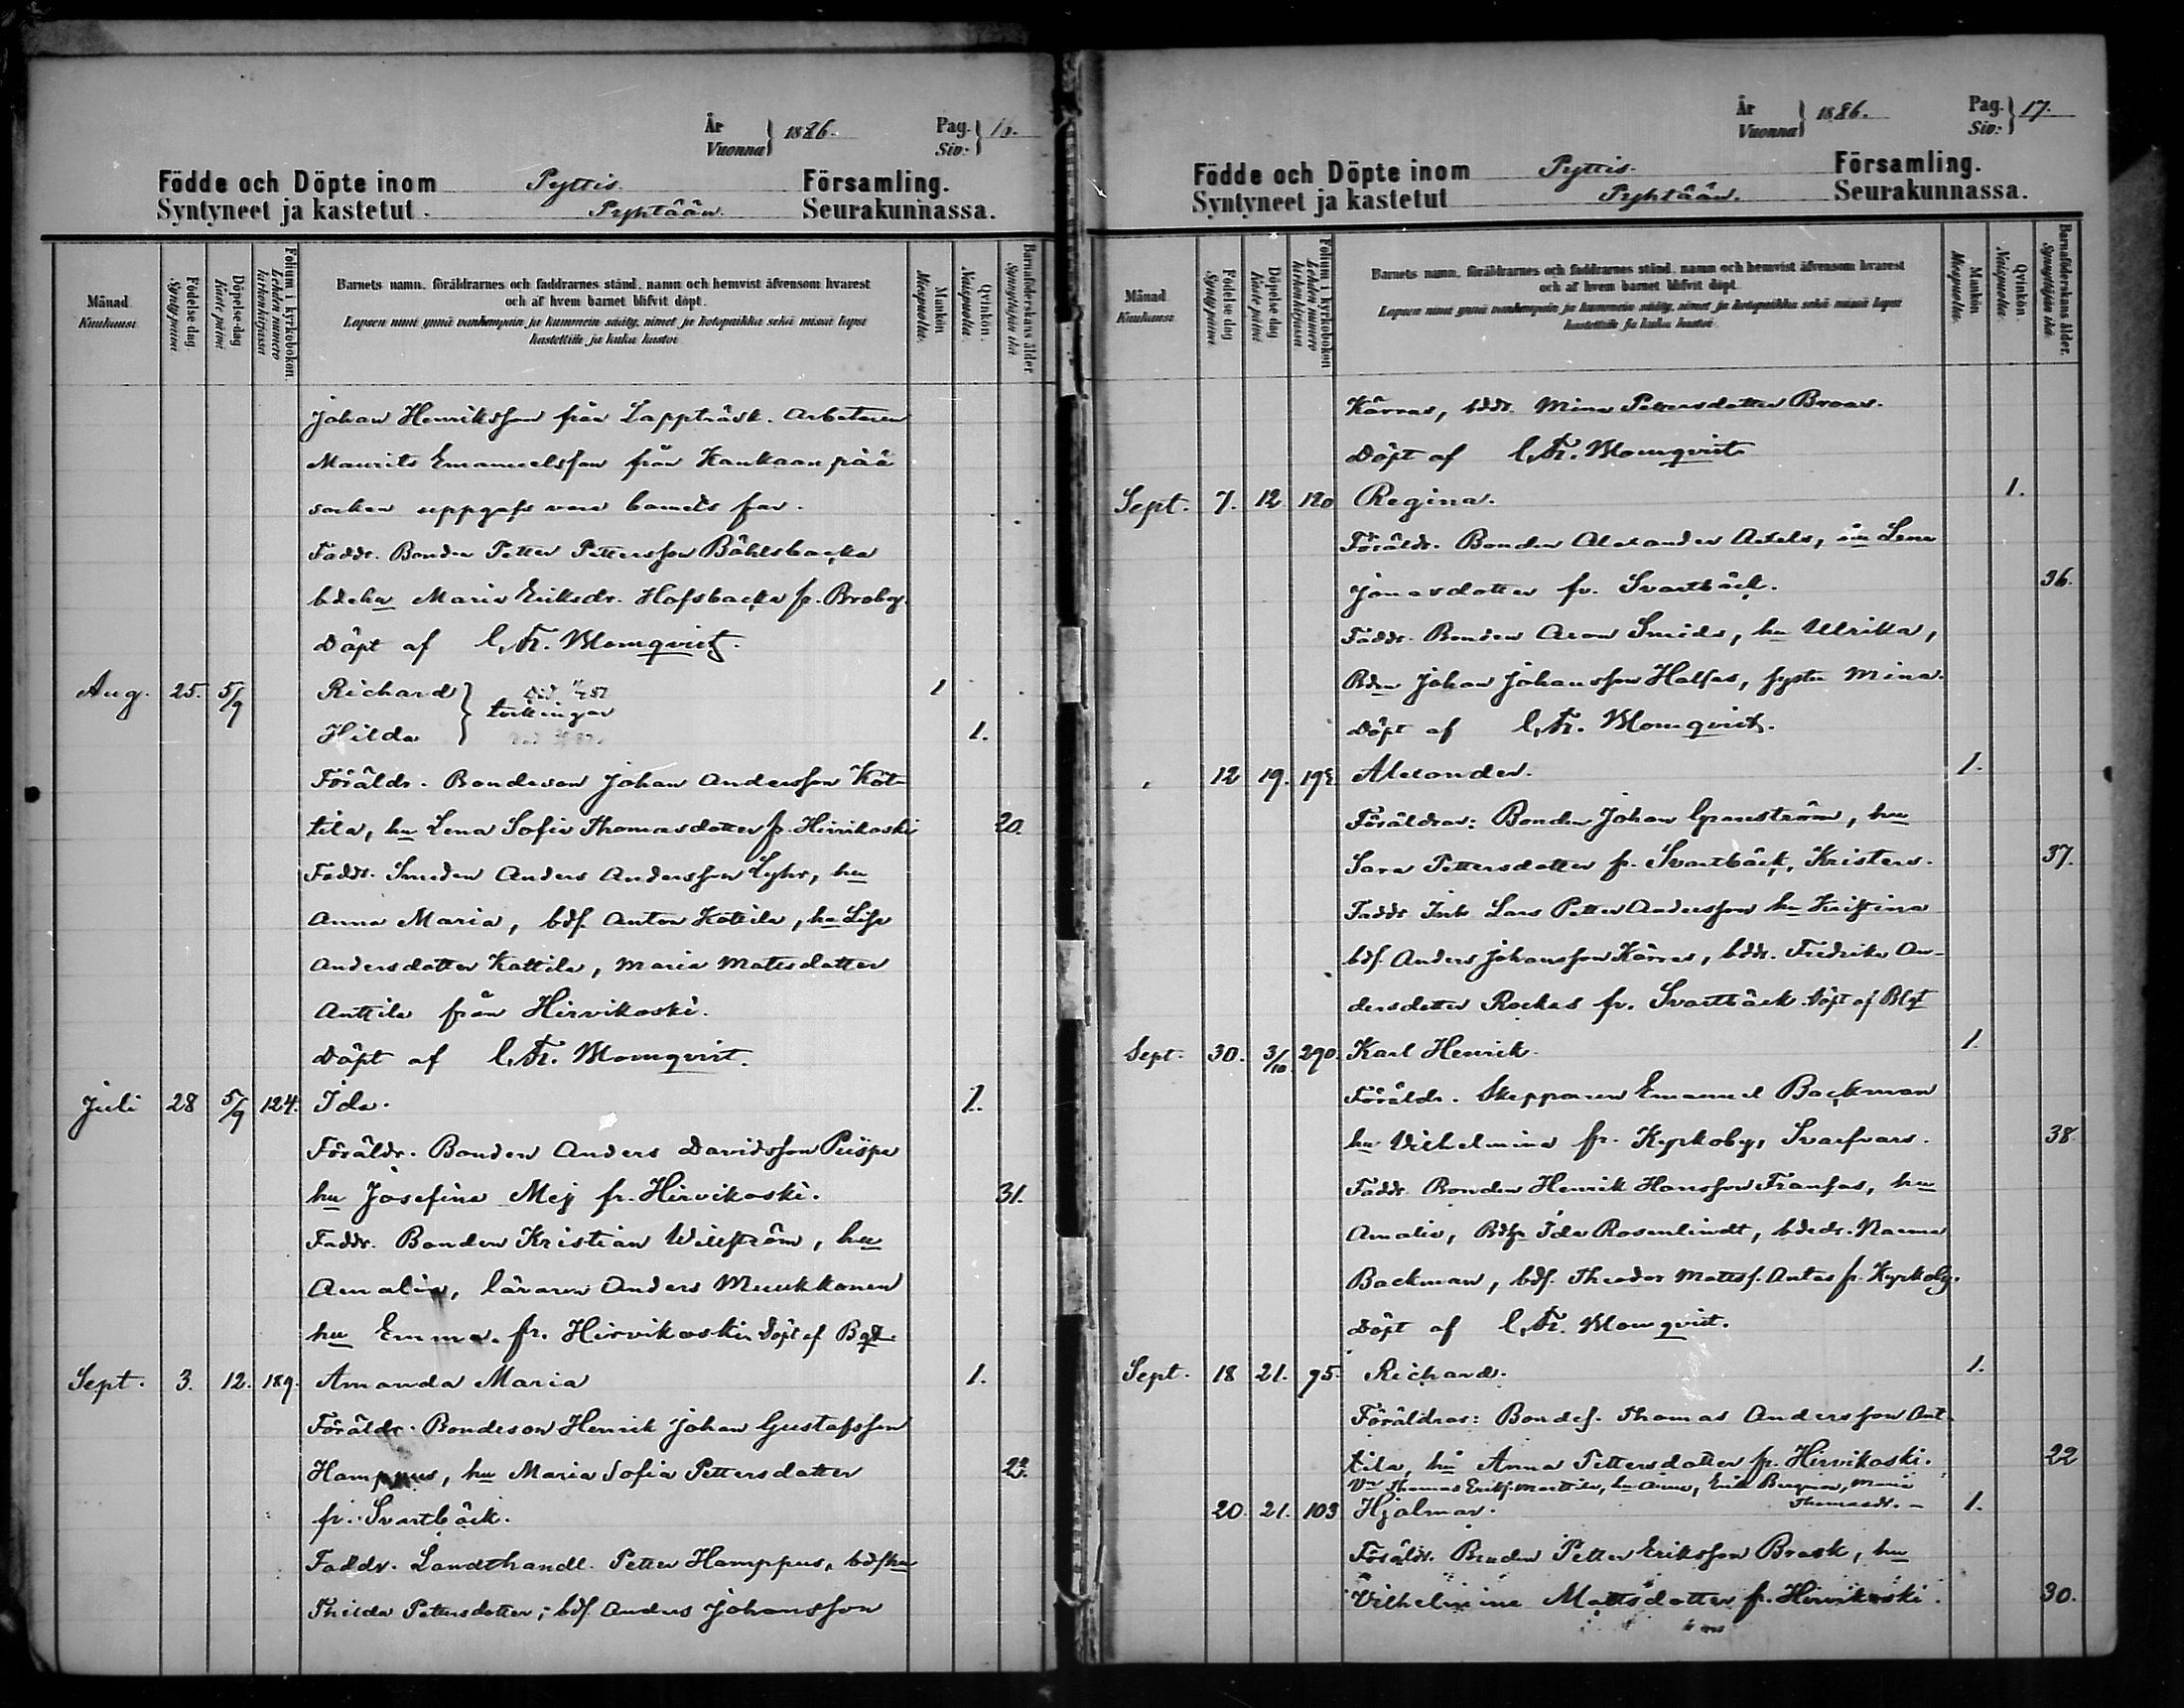 År
Vuonna } 1886.
Pag.
Siv: } 16.
Födde och Döpte inom Pyttis. Församling.
Syntyneet ja kastetut. Pyhtään. Seurakunnassa.
Månad.
Kuukausi.
Födelse-dag.
Syntypäivä
Döpelse-dag
Kaste päivä
Folium i kyrkobokon.
Lehden numero
kirkonkirjassa
Barnets namn, föräldrarnes och faddrarnes stånd, namn och hemvist äfvensom hvarest
och af hvem barnet blifvit döpt.
Lapsen nimi ynnä vanhempain ja kummein sääty, nimet ja kotopaikka sekä missä lapsi
kastettiin ja kuka kastoi.
Mankön
Miespuolta.
Qvinkön.
Naispuolta.
Barnaföderskans ålder.
Synnyttäjän ikä
Johan Henriksson från Lappträsk. Arbetaren
Maurits Emanuelsson från Kankaanpää
socken uppgafs vara barnets far.
Faddr. Bonden Petter Pettersson Båhlsbacka
bdehu Maria Eriksdr. Hofsbacka fr. Broby.
Döpt af C. Fr. Blomqvist.
Aug. 25. 5/9 Richard } Död 1
tvillingar
Hilda } 1.
Föräldr. Bondeson Johan Andersson Kot-
tila, hu Lena Sofia Thomasdotter fr. Hirvikoski 20.
Faddr. Smeden Anders Andersson Lyhr, hu
Anna Maria, bds. Anton Kottila, hu Lisa
Andersdotter Kattila, Maria Matsdotter
Anttila från Hirvikoski.
Döpt af C. Fr. Blomqvist.
Juli 28 5/9 124. Ida. 1.
Föräldr. Bonden Anders Davidsson Piispa
hu Josefina Mej fr. Hirvikoski. 31.
Faddr. Bonden Kristian Willström, hu
Amalia, läraren Anders Muukkonen
hu Emma fr. Hirvikoski Döpt af Bqt.
Sept. 3. 12. 189. Amanda Maria 1.
Föräldr. Bondeson Henrik Johan Gustafsson
Hamppus, hu Maria Sofia Pettersdotter 22.
fr. Svartbäck.
Faddr. Landthandl. Petter Hamppus, bdshu
Thilda Pettersdotter; bds. Anders Johansson
År
Vuonna } 1886.
Pag.
Siv: } 17.
Födde och Döpte inom Pyttis. Församling.
Syntyneet ja kastetut Pyhtään. Seurakunnassa.
Månad
Kuukausi
Födelse dag
Syntypäivä
Döpelse dag
Kaste päivä
Folium i kyrkobokon
Lehden numero
kirkonkirjassa
Barnets namn, föräldrarnes och faddrarnes stånd, namn och hemvist äfvensom hvarest
och af hvem barnet blifvit döpt.
Lapsen nimi ynnä vanhempain ja kummein sääty, nimet ja kotopaikka sekä missä lapsi
kastettiin ja kuka kastoi.
Mankön
Miespuolta.
Qvinkön
Naispuolta.
Barnaföderskans ålder.
Synnyttäjän ikä.
Kärras, bddr. Mina Pettersdotter Broas.
Döpt af C. Fr. Blomqvist
Sept. 7. 12 120 Regina. 1.
Föräldr. Bonden Alexander Axels, hu Lena
Jonasdotter fr. Svartbäck. 36.
Faddr. Bonden Aron Smids, hu Ulrika,
Bdn Johan Johansson Halfas, syster Mina.
Döpt af C. Fr. Blomqvist.
12 19. Alexander. 1.
Föräldrar: Bonden Johan Granström, hu
Sara Pettersdotter fr. Svartbäck, Kristers. 37.
Faddr Lars Petter Andersson hu Kristina
bds. Anders Johansson Kärras, bddr. Fredrika An-
dersdotter Rockas fr. Svartbäck Döpt af Blqt
Sept. 30. 3/10 290. Karl Henrik. 1.
Föräldr. Skepparen Emanuel Backman
hu Vilhelmina fr. Kyrkoby, Svarfvars. 38.
Faddr. Bonden Henrik Hansson Fransas, hu
Amalia, Ida Rosenlindt, bdedr. Naema
Backman, bds. Theodor Mattss. Antas fr. Kyrkoby.
Döpt af C. Fr. Blomqvist.
Sept. 18 21. 95. Richard. 1.
Föräldrar: Bondes. Thomas Andersson Ant-
tila, hu Anna Pettersdotter fr. Hirvikoski. 22
Thomas Eriks. Marttila, hu Anna, Erik Bergman, Maria
Thomasdr. –
20. 21. 103 Hjalmar. 1.
Föräldr. Bonden Petter Eriksson Brask, hu
Vilhelmina Mattsdotter fr. Hirvikoski. 30.